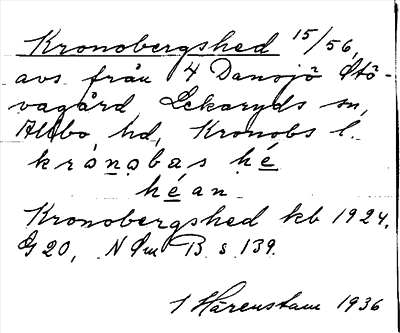 Kronobergshed 15/56,
avs. från 4 Dansjö Stö-
vagård Lekaryds sn,
Allbo hd, Kronobs l.
krónobas hé
héan
Kronobergshed kb 1924.
G 20, N Om B s 139.
1 Härenstam 1936